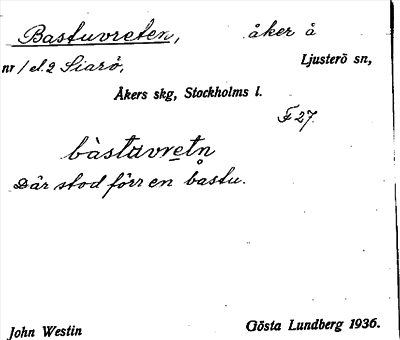 Bastuvreten, åker å
nr 1 el. 2 Siarö, Ljusterö sn,
Åkers skg, Stockholms l.
F 27.
bàstavretn̥
Där stod förr en bastu.
John Westin Gösta Lundberg 1936.